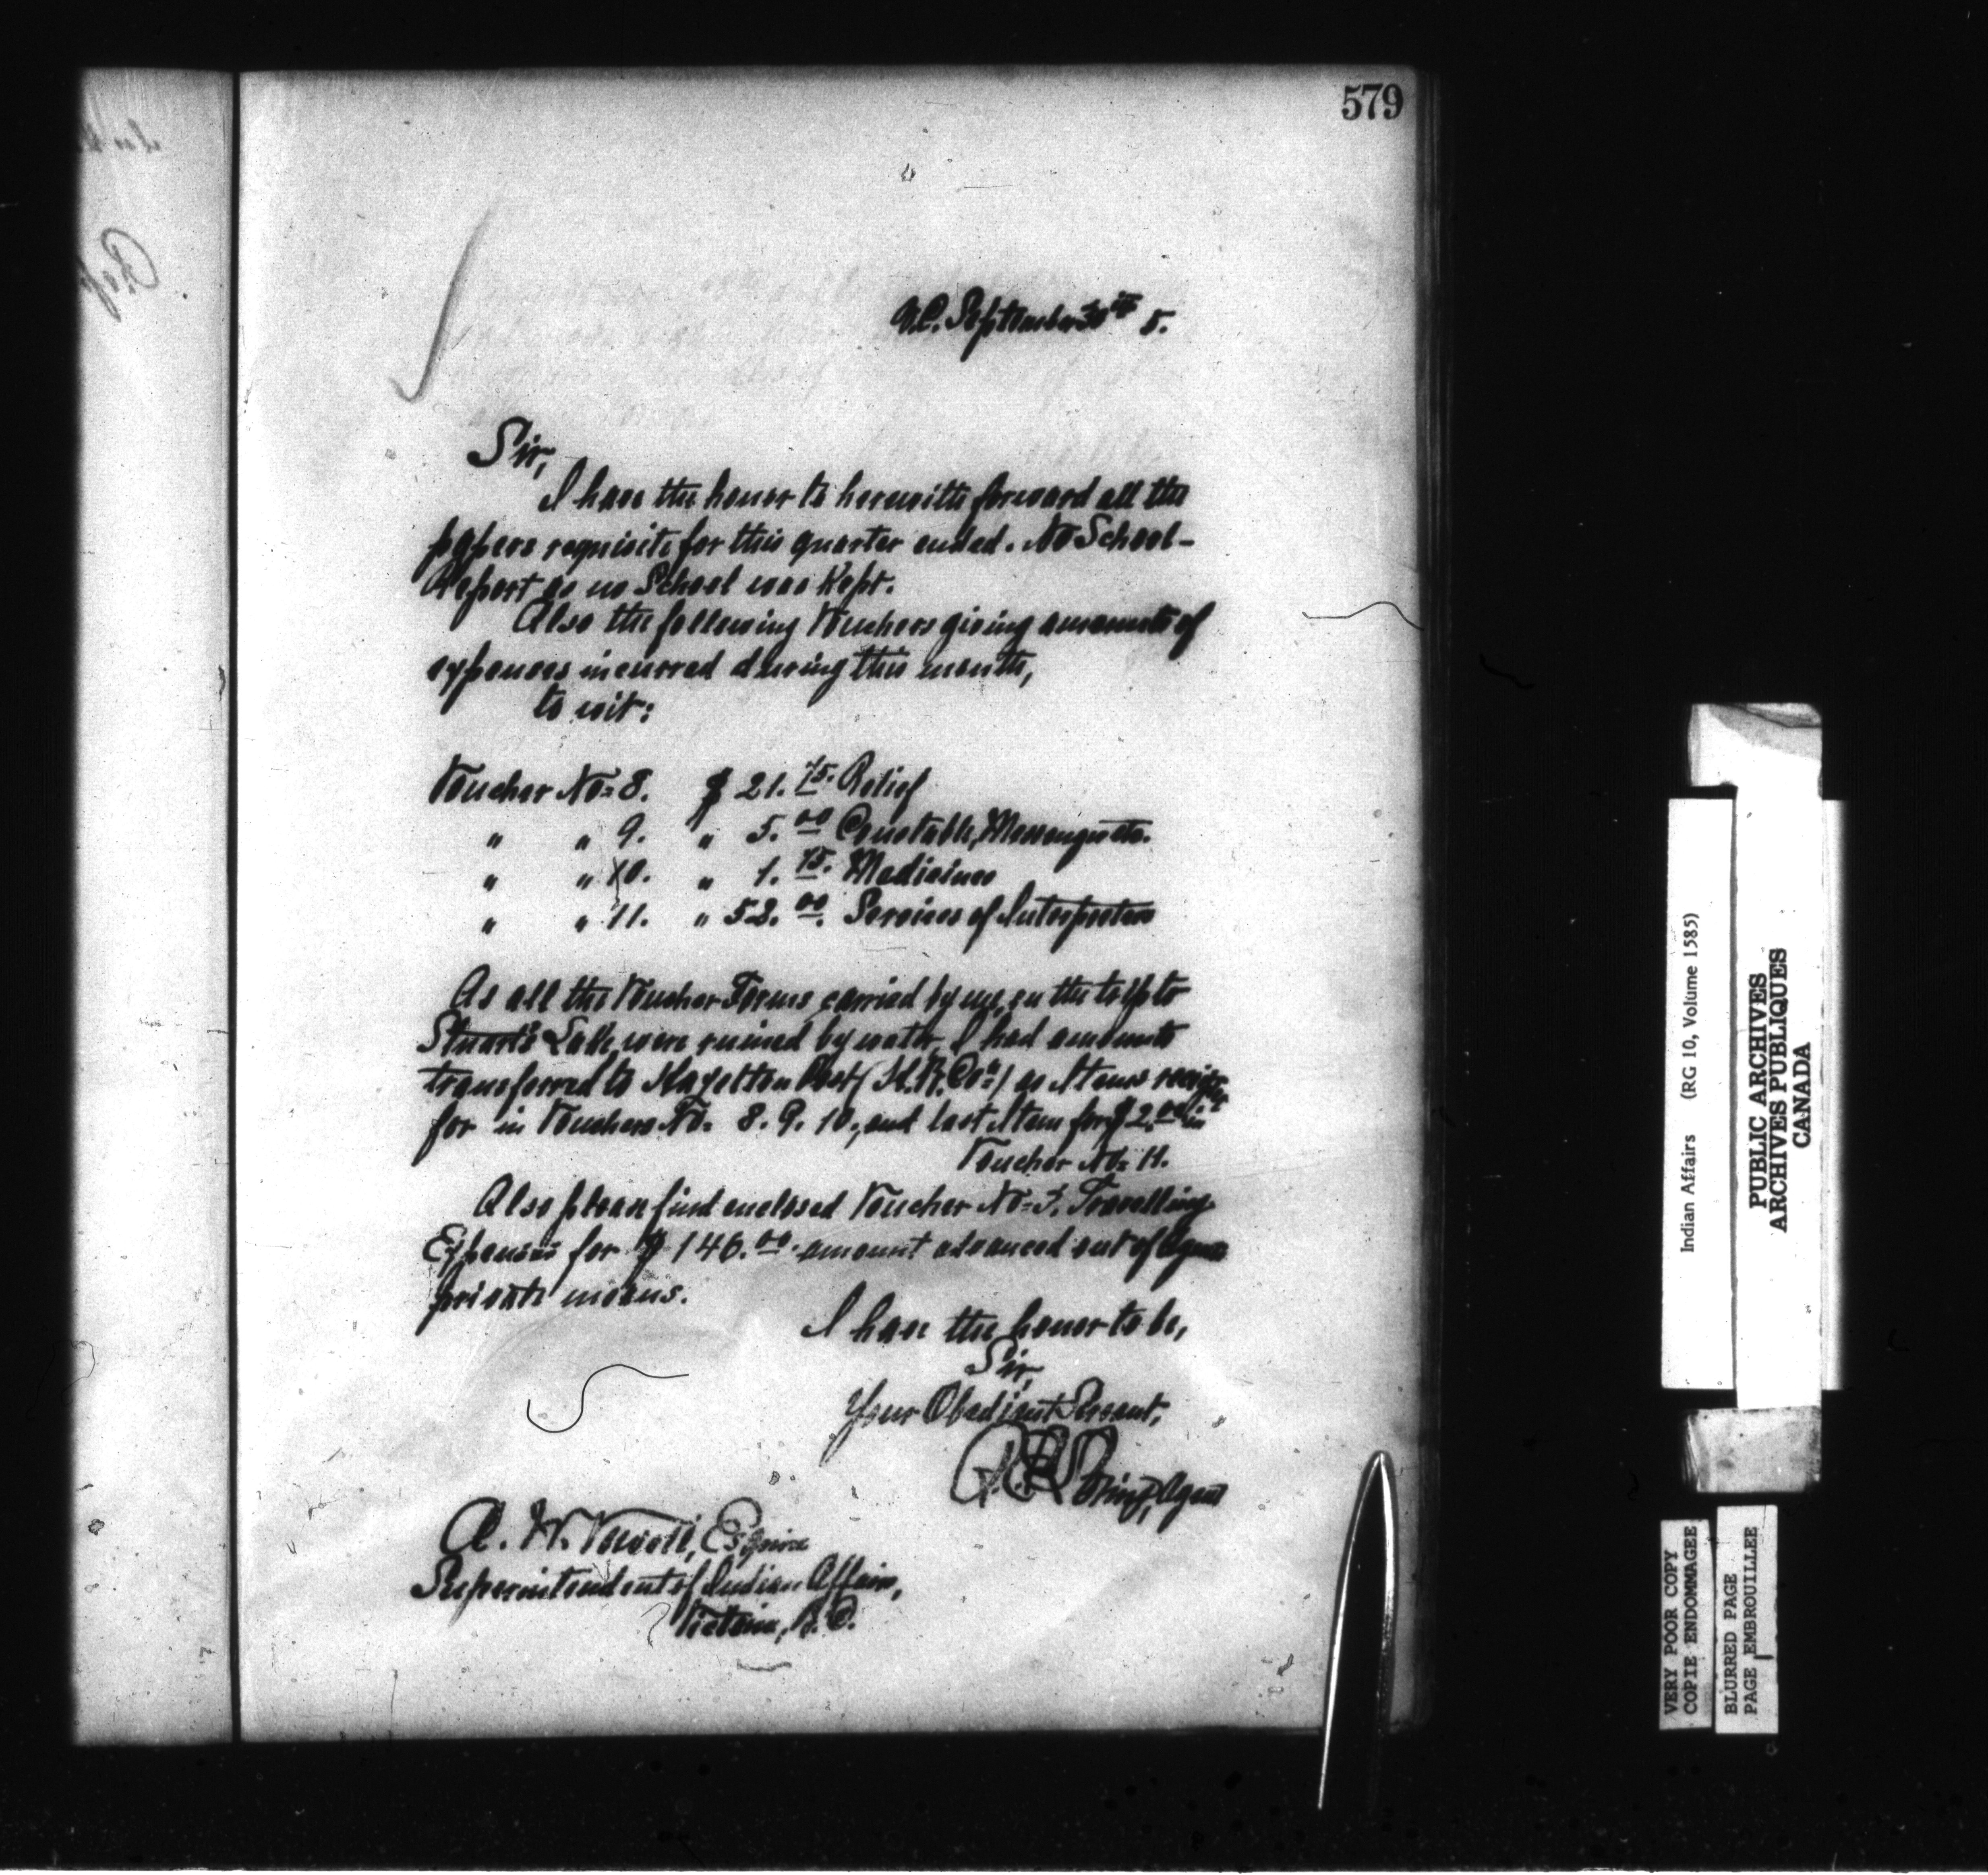 579
B.C. September 30th 5.
Sir,
I have the honor to herewith forward all the
papers requisite for this quarter ended. No School-
Report as no School was Kept.
Also the following Vouchers giving amounts of
expenses incurred during this month,
to wit:
Voucher No= 8. $ 21. 75. Relief
" " 9. " 5. 00 Constable, Messenger etc.
" " 10. " 1. 75. Medicines
" " 11. " 52. 00. Services of Interpreters
As all the Voucher Forms, carried by me, on the trip to
Stuart's Lake, were ruined by water, I had amounts
transferred to Hazelton Post (H. B. Co=) as Items
for in Vouchers No= 8. 9. 10., and last Item for $ 2.00 in
Voucher No= 11.
Also please find enclosed Voucher No= 3. Travelling
Expenses for $ 146.00. amount advanced out of Agent's
private means.
I have the honor to be,
Sir,
Your Obedient Servant,
Agent
A. W. Vowell, Esquire
Superintendent of Indian Affairs,
Victoria, B. C.
Indian Affairs (RG 10, Volume 1585)
PUBLIC ARCHIVES
ARCHIVES PUBLIQUES
CANADA
VERY POOR COPY
COPIE ENDOMMAGEE
BLURRED PAGE
PAGE EMBROUILLEE